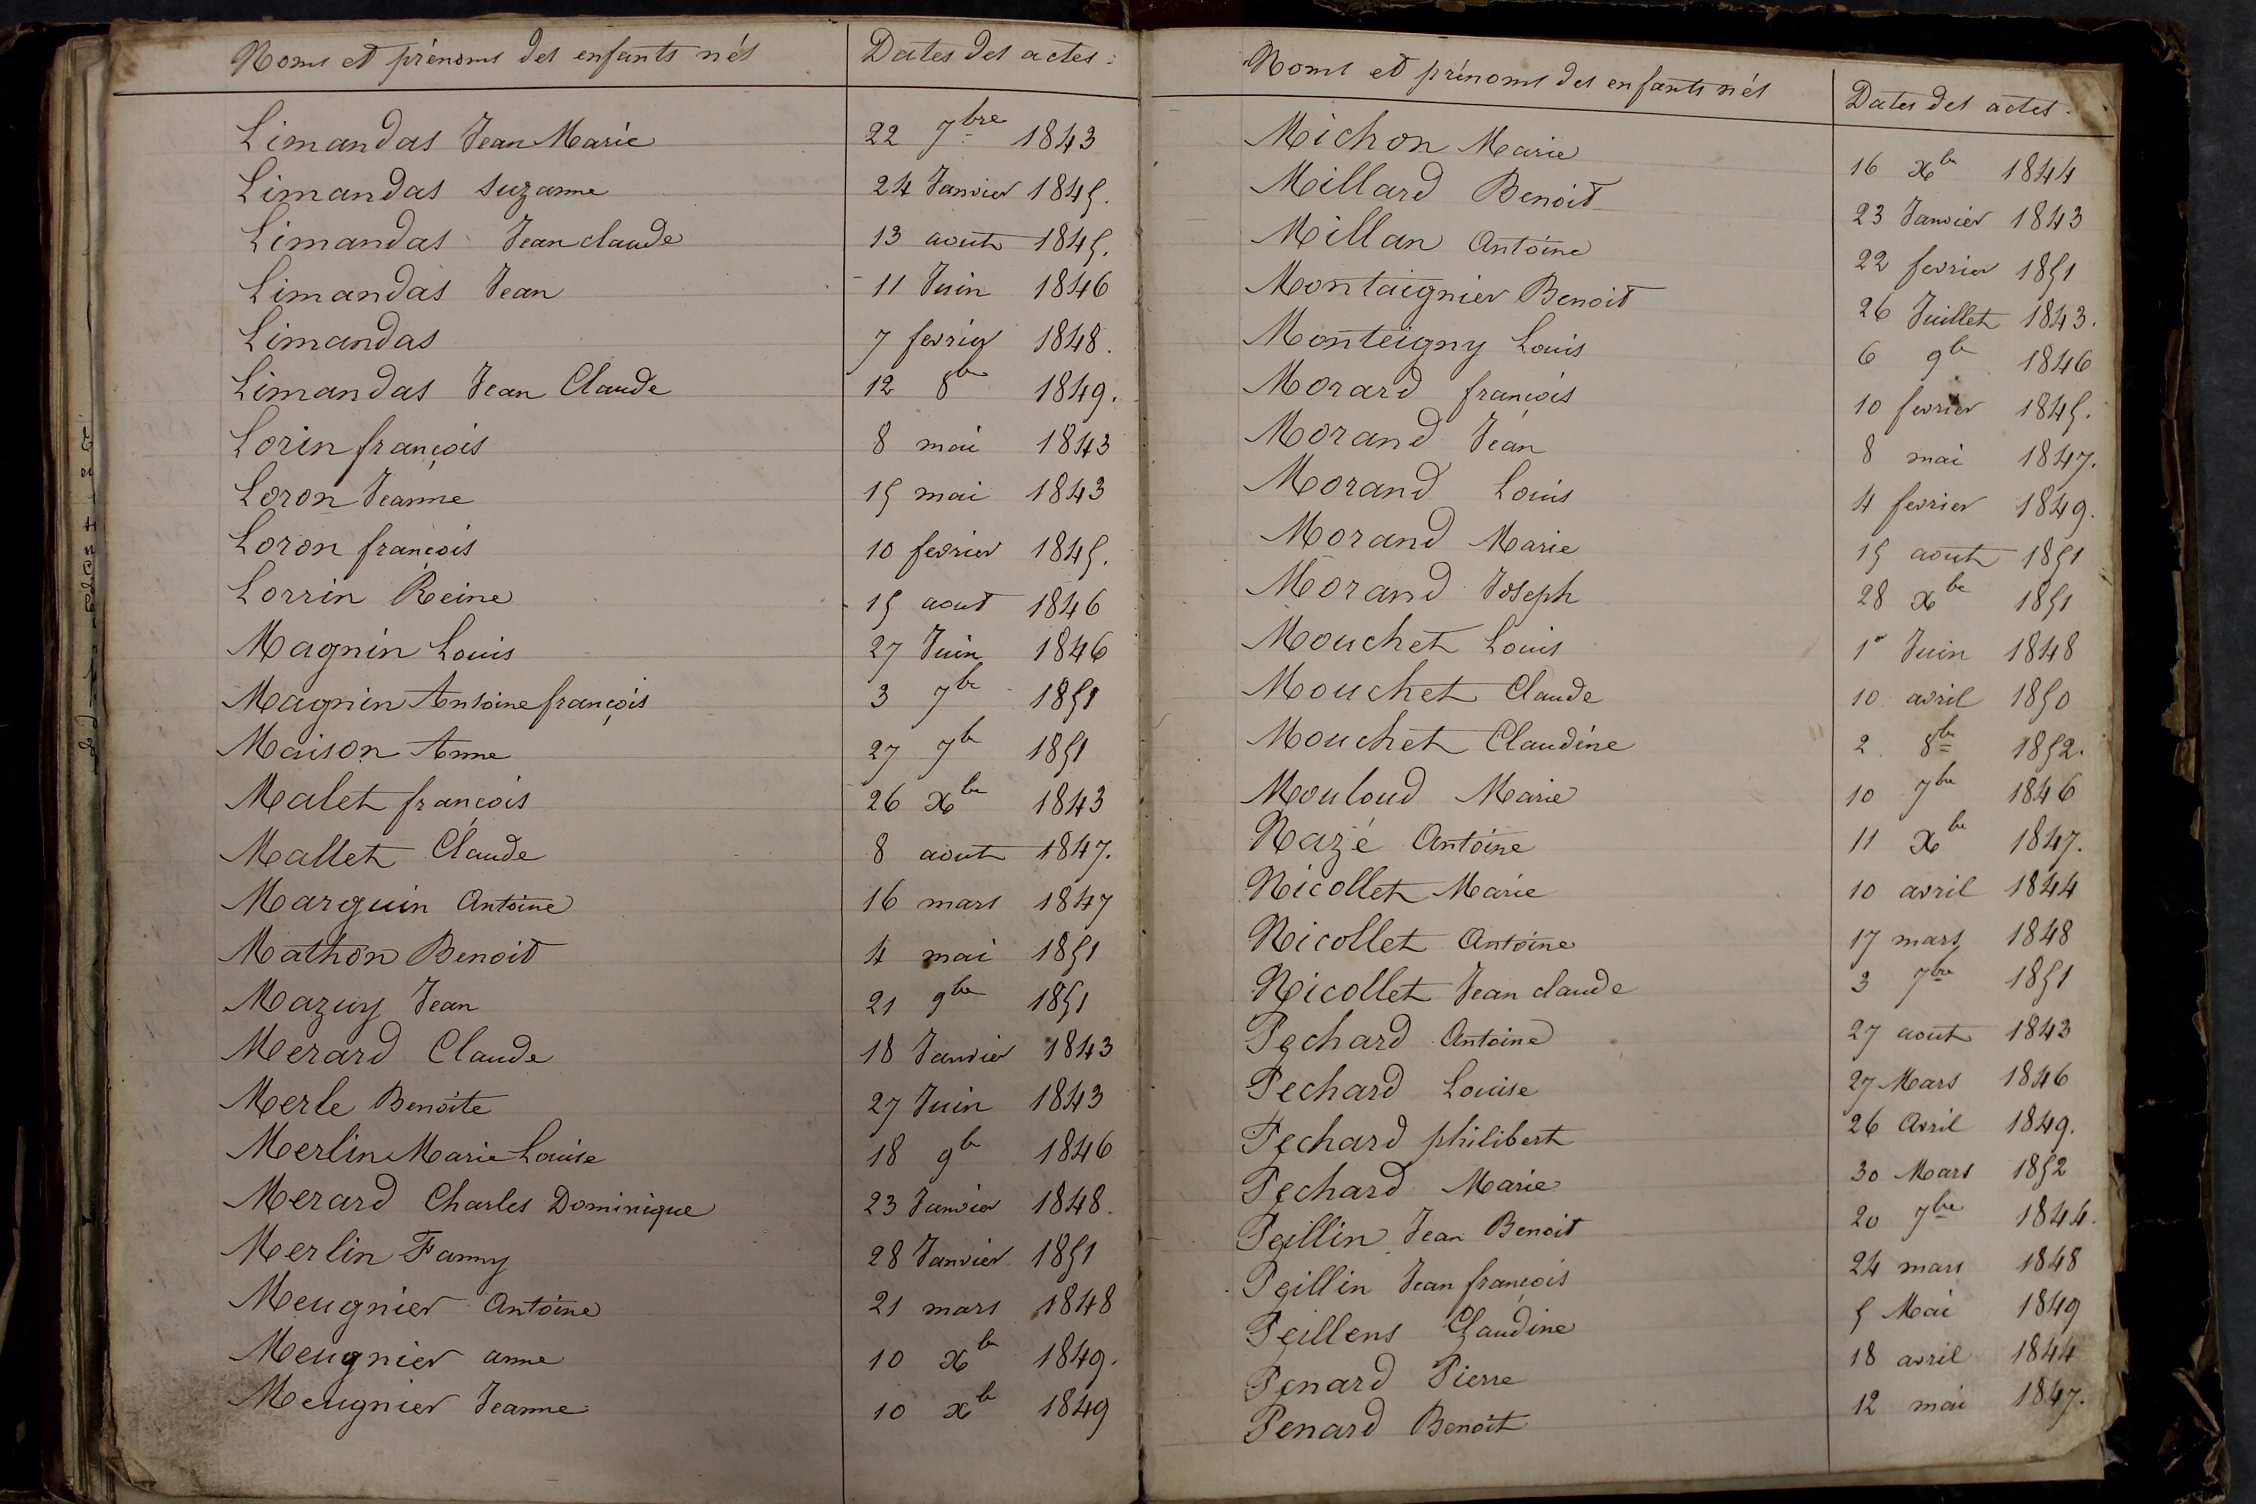 Noms et prénoms des enfants nés Dates des actes.
Limandas Jean Marie 22 7bre 1843
Limandas Suzanne 24 Janvier 1845.
Limandas Jean claude 13 aout 1845.
Limandas Jean 11 Juin 1846
Limandas 7 fevrier 1848.
Limandas Jean Claude 12 8be 1849.
Lorin françois 8 mai 1843
Loron Jeanne 15 mai 1843
Loron françois 10 fevrier 1845.
Lorrin Reine 15 aout 1846
Magnin Louis 27 Juin 1846
Magnin Antoine françois 3 7be 1851
Maison Anne 27 7be 1851
Malet françois 26 Xbe 1843
Mallet Claude 8 aout 1847.
Marguin Antoine 16 mars 1847
Mathon Benoit 4 mai 1851
Mazuy Jean 21 9bre 1851
Merard Claude 18 Janvier 1843
Merle Benoite 27 Juin 1843
Merlin Marie Louise 18 9be 1846
Merard Charles Dominique 23 Janvier 1848.
Merlin Fanny 28 Janvier 1851
Meugnier Antoine 21 mars 1848
Meugnier anne 10 Xbe 1849.
Meugnier Jeanne 10 Xbe 1849
Noms et prénoms des enfants nés Dates des actes.
Michon Marie 16 Xbe 1844
Millard Benoit 23 Janvier 1843
Millan Antoine 22 fevrier 1851
Montaignier Benoit 26 Juillet 1843.
Monteigny Louis 6 9be 1846
Morard françois 10 fevrier 1845.
Morand Jean 8 mai 1847.
Morand Louis 4 fevrier 1849.
Morand Marie 15 aout 1851
Morand Joseph 28 Xbe 1851
Mouchet Louis 1r Juin 1848
Mouchet Claude 10 avril 1850
Mouchet Claudine 2 8be 1852.
Mouloud Marie 10 7bre 1846
Nazé Antoine 11 Xbe 1847.
Nicollet Marie 10 avril 1844
Nicollet Antoine 17 mars 1848
Nicollet Jean claude 3 7bre 1851
Pechard Antoine 27 aout 1843
Pechard Louise 27 Mars 1846
Pechard philibert 26 Avril 1849.
Pechard Marie 30 Mars 1852
Peillin Jean Benoit 20 7bre 1844.
Peillin Jean françois 24 mars 1848
Peillens Claudine 5 Mai 1849
Penard Pierre 18 avril 1844
Penard Benoit 12 mai 1847.